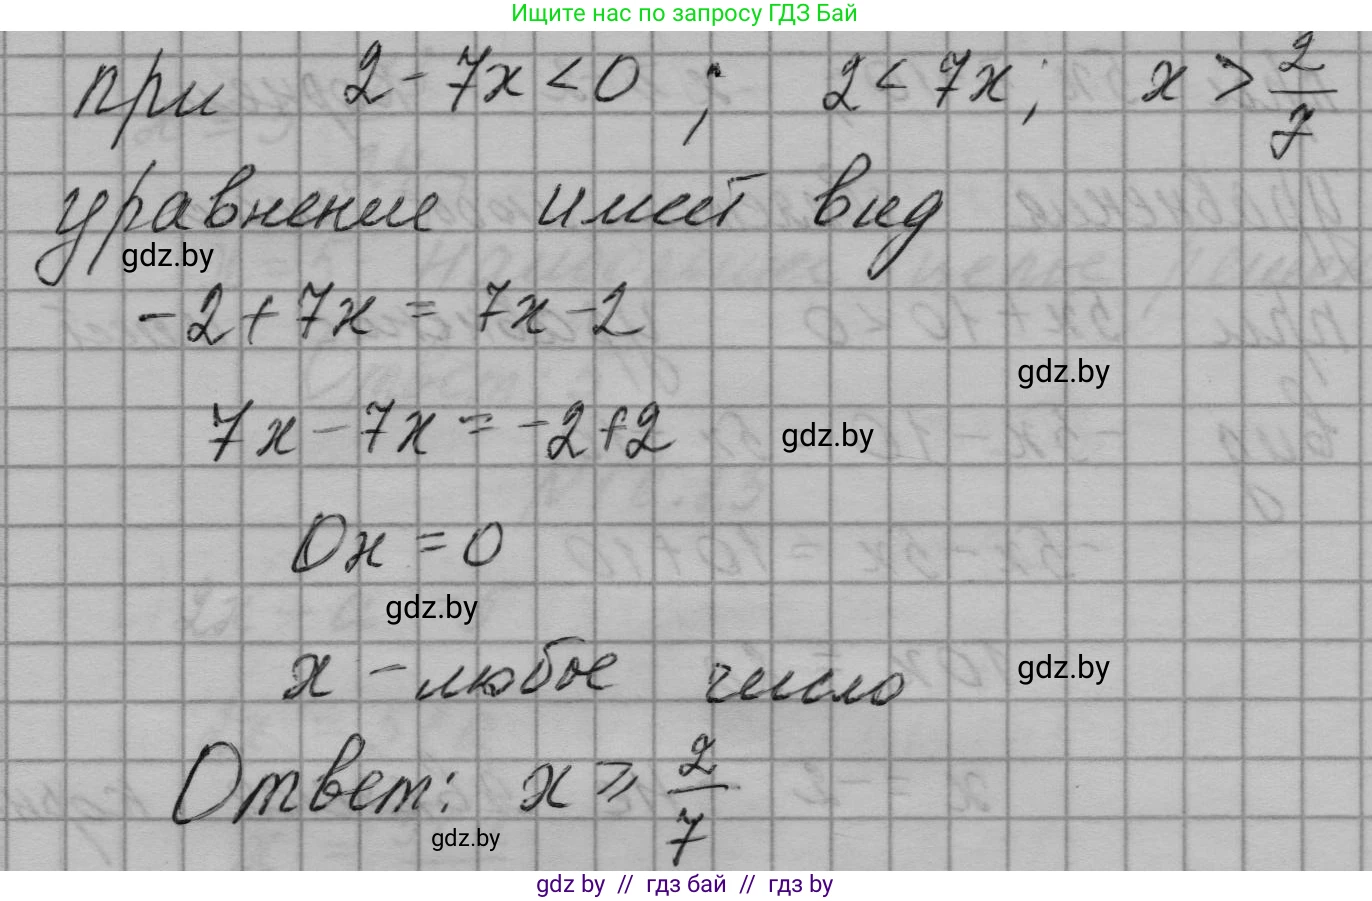 Ищите нас по запросу ГДЗ Бай
при 2 - 7x < 0 ; 2 < 7x; x > 2/7
уравнение имеет вид
gdz.by
-2 + 7x = 7x - 2
gdz.by
7x - 7x = -2 + 2 gdz.by
0x = 0
gdz.by
x - любое число gdz.by
Ответ: x ⩾ 2/7
gdz.by
gdz by // гдз бай // гдз by